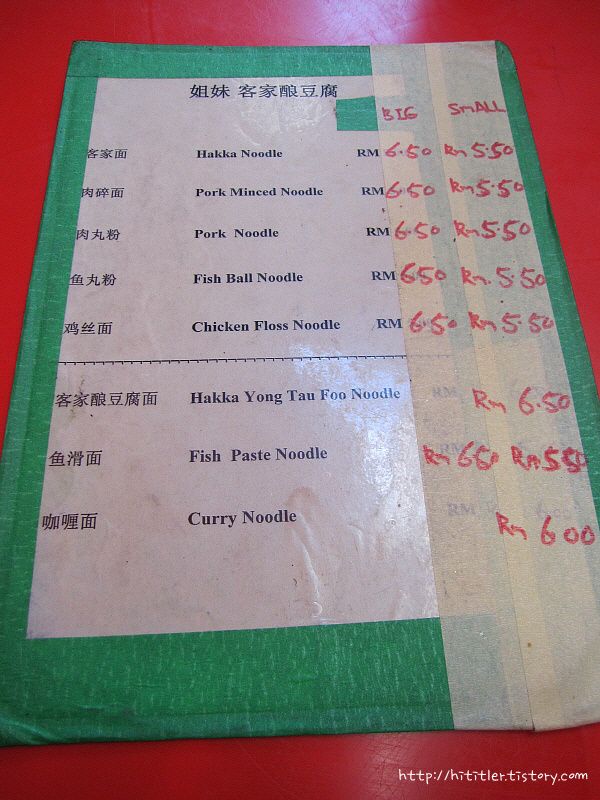 姐妹 客家酿豆腐
BIG SMALL
客家面 Hakka Noodle RM 6.50 Rm 5.50
肉碎面 Pork Minced Noodle RM 6.50 Rm 5.50
肉丸粉 Pork Noodle RM 6.50 Rm 5.50
鱼丸粉 Fish Ball Noodle RM 650 Rm 5.50
鸡丝面 Chicken Floss Noodle RM 6.50 Rm 5.50
客家酿豆腐面 Hakka Yong Tau Foo Noodle RM Rm 6.50
鱼滑面 Fish Paste Noodle Rm 650 Rm 550
咖喱面 Curry Noodle RM Rm 600
http://hititler.tistory.com